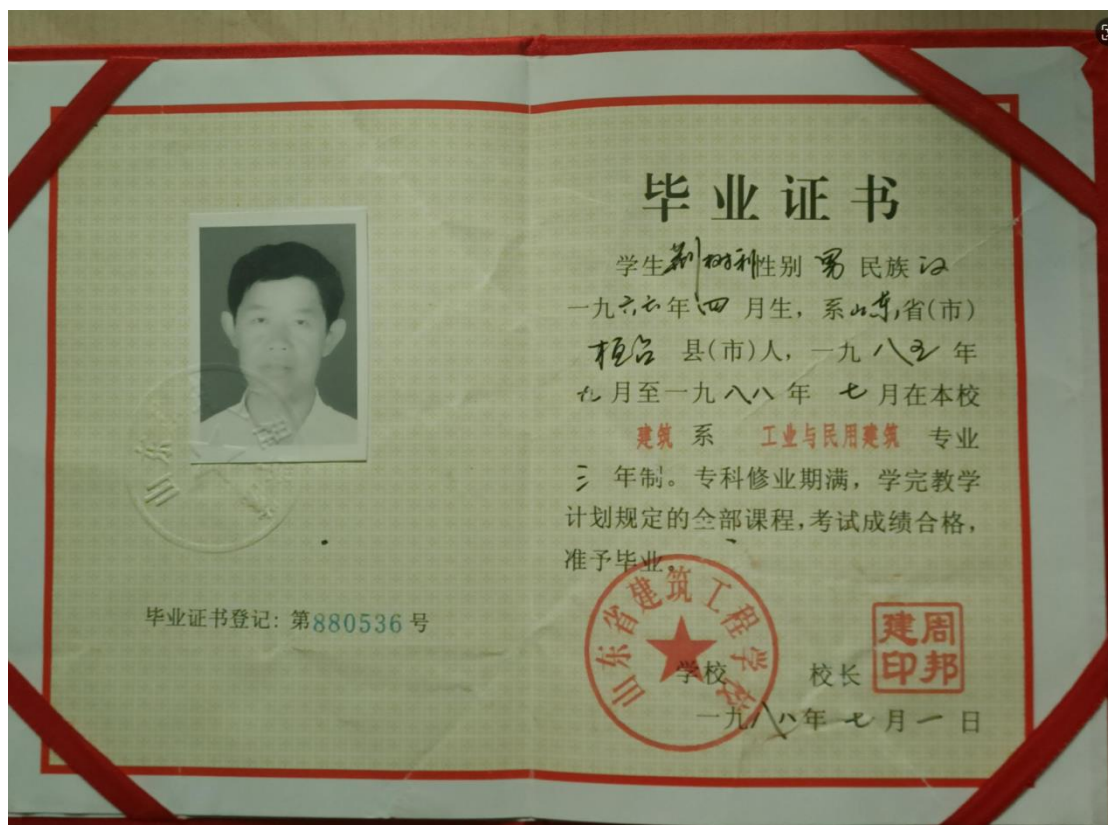 毕业证书
学生荆树利性别 男 民族 汉
一九六七年 四 月生，系山东省(市)
桓台 县(市)人，一九八五年
九月至一九八八年 七 月在本校
建筑 系 工业与民用建筑 专业
三 年制。专科修业期满，学完教学
计划规定的全部课程，考试成绩合格，
准予毕业。
山东省建筑工程学校
学校 校长
周邦建印
一九八八年 七 月 一 日
毕业证书登记：第880536号